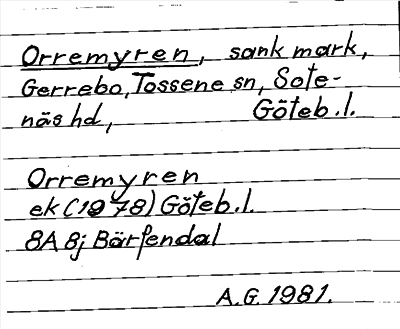 Orremyren, sank mark,
Gerrebo, Tossene sn, Sote-
näs hd, Göteb. l.
Orremyren
ek (1978) Göteb. l.
8A 8j Bärfendal
A.G. 1981.